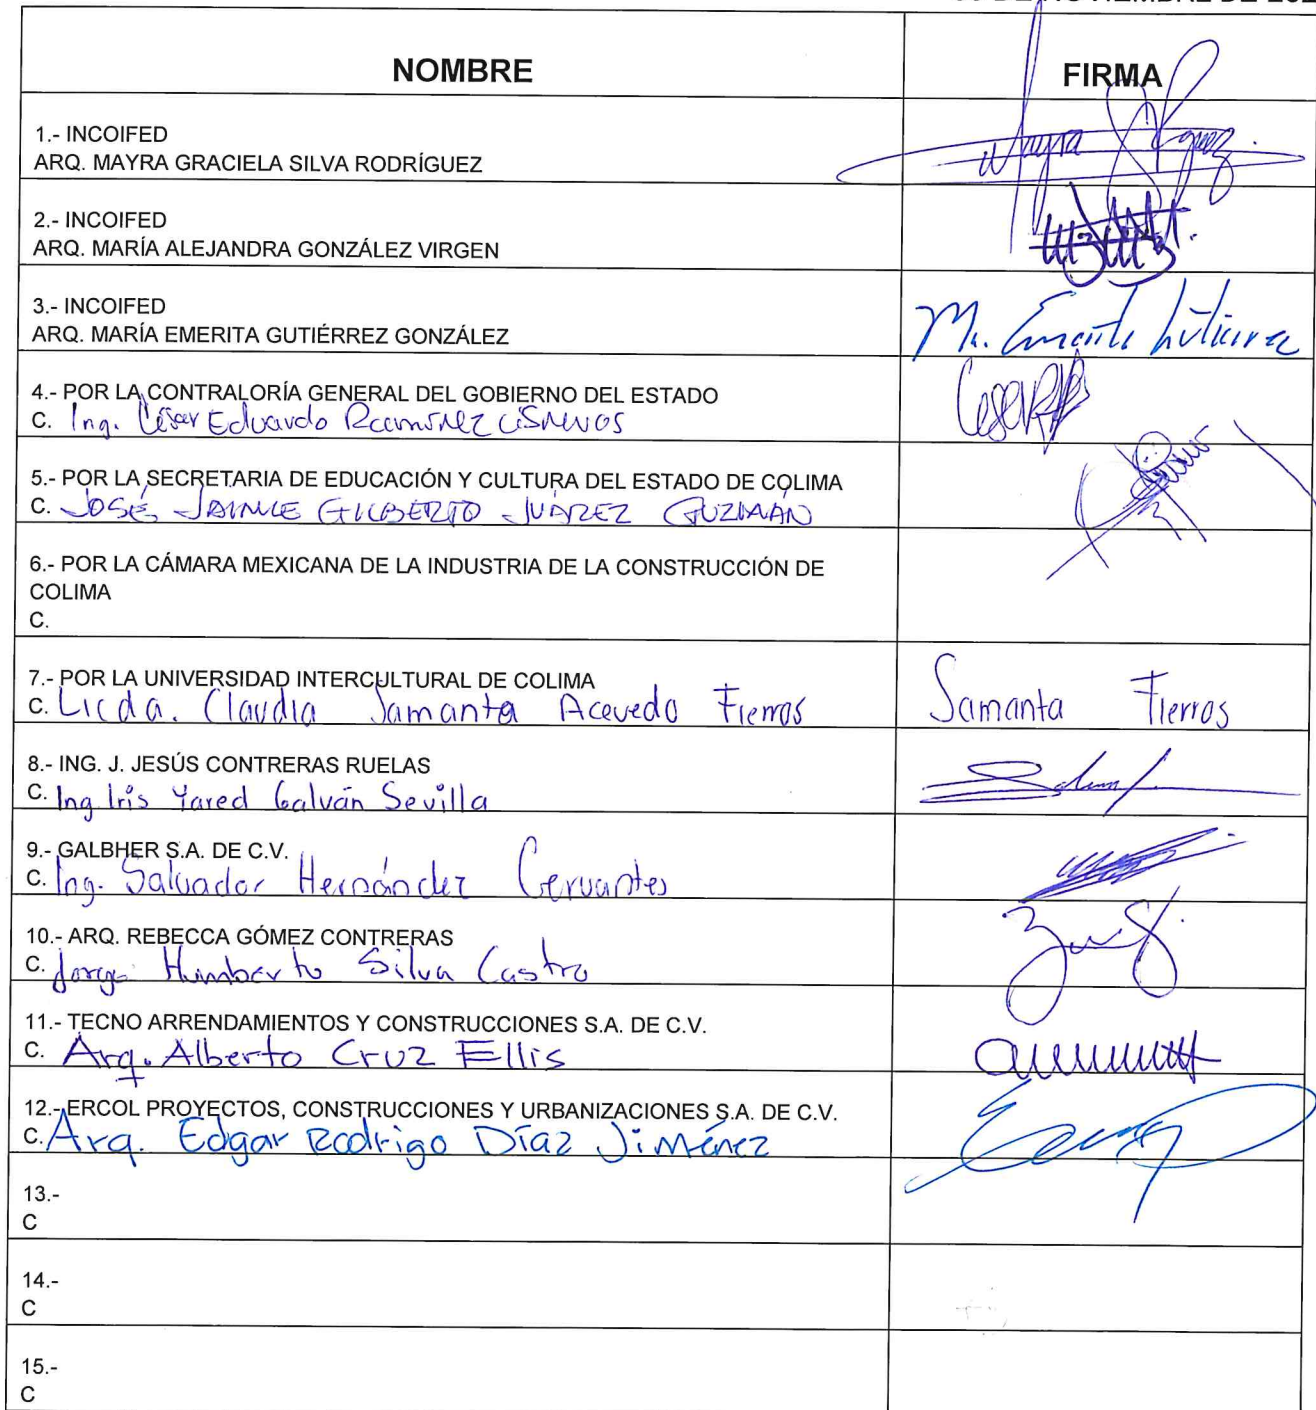 DE NOVIEMBRE DE
NOMBRE
FIRMA
1.- INCOIFED
ARQ. MAYRA GRACIELA SILVA RODRÍGUEZ
2.- INCOIFED
ARQ. MARÍA ALEJANDRA GONZÁLEZ VIRGEN
3.- INCOIFED
ARQ. MARÍA EMERITA GUTIÉRREZ GONZÁLEZ
Ma. Emerita Gutierrez
4.- POR LA CONTRALORÍA GENERAL DEL GOBIERNO DEL ESTADO
C. Ing. César Eduardo Ramírez Cisneros
5.- POR LA SECRETARIA DE EDUCACIÓN Y CULTURA DEL ESTADO DE COLIMA
C. JOSÉ JAIME GILBERTO JUÁREZ GUZMÁN
6.- POR LA CÁMARA MEXICANA DE LA INDUSTRIA DE LA CONSTRUCCIÓN DE
COLIMA
C.
7.- POR LA UNIVERSIDAD INTERCULTURAL DE COLIMA
C. Licda. Claudia Samanta Acevedo Fierros
Samanta Fierros
8.- ING. J. JESÚS CONTRERAS RUELAS
C. Ing Iris Yared Galván Sevilla
9.- GALBHER S.A. DE C.V.
C. Ing. Salvador Hernández Cervantes
10.- ARQ. REBECCA GÓMEZ CONTRERAS
C. Jorge Humberto Silva Castro
11.- TECNO ARRENDAMIENTOS Y CONSTRUCCIONES S.A. DE C.V.
C. Arq. Alberto Cruz Ellis
12.- ERCOL PROYECTOS, CONSTRUCCIONES Y URBANIZACIONES S.A. DE C.V.
C. Arq. Edgar Rodrigo Díaz Jiménez
13.-
C
14.-
C
15.-
C